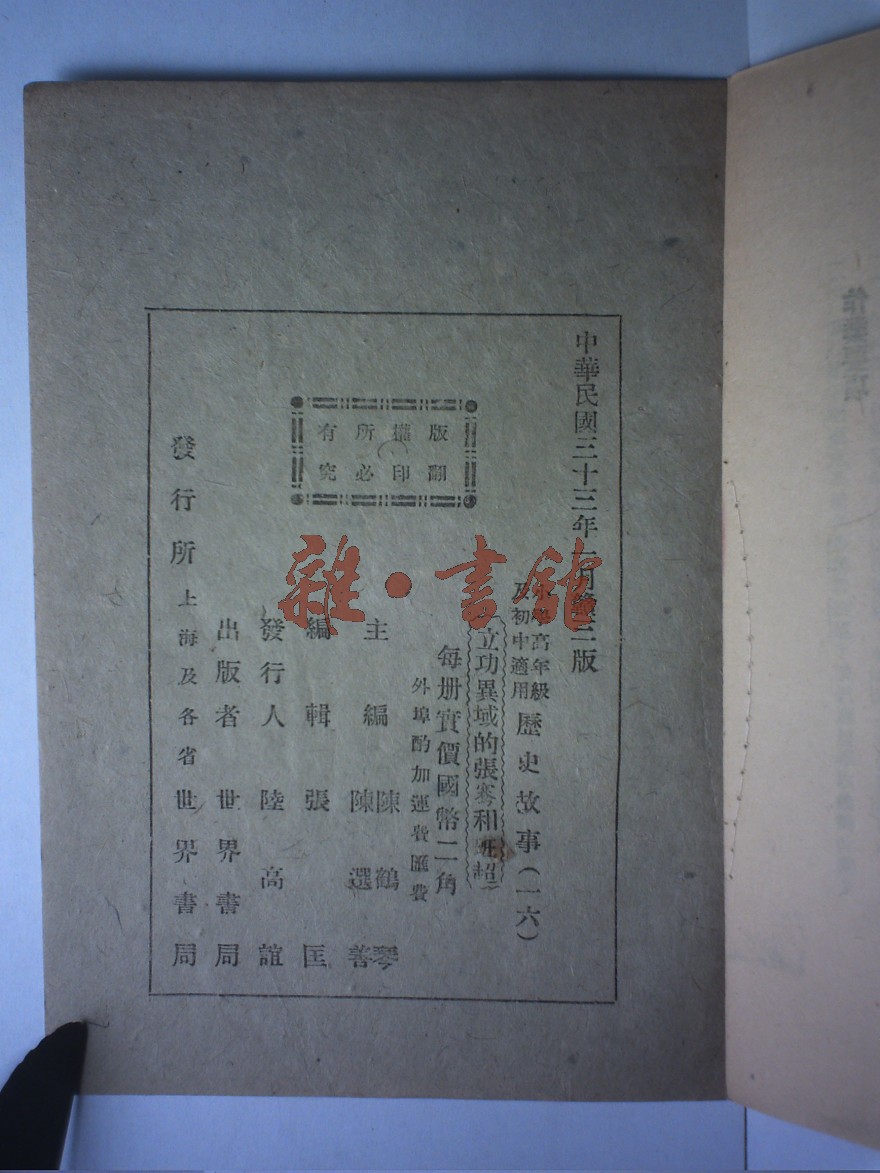 中華民國三十三年一月贛二版
小學高年級
及初中適用
歷史故事(一六)
立功異域的張騫和班超
每册實價國幣二角
外埠酌加運費匯費
版權所有
翻印必究
主編 陳鶴琴
陳選善
編輯 張匡
發行人 陸高誼
出版者 世界書局
發行所 上海及各省世界書局
雜·書館